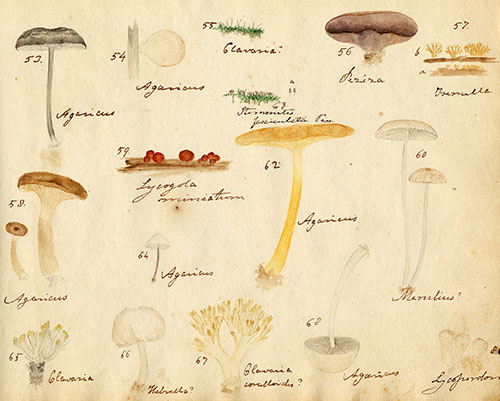 53.
Agaricus
54
Agaricus
55.
Clavaria?
56
Peziza
57.
b
a
Tremella
63
Stemonites
fasciculata Pers.
59
Lycogola
miniatum
62.
Agaricus
60
Merulius?
58.
Agaricus
64
Agaricus
65
Clavaria
66
Helvella?
67
Clavaria
coralloides?
68
Agaricus
Lycoperdon